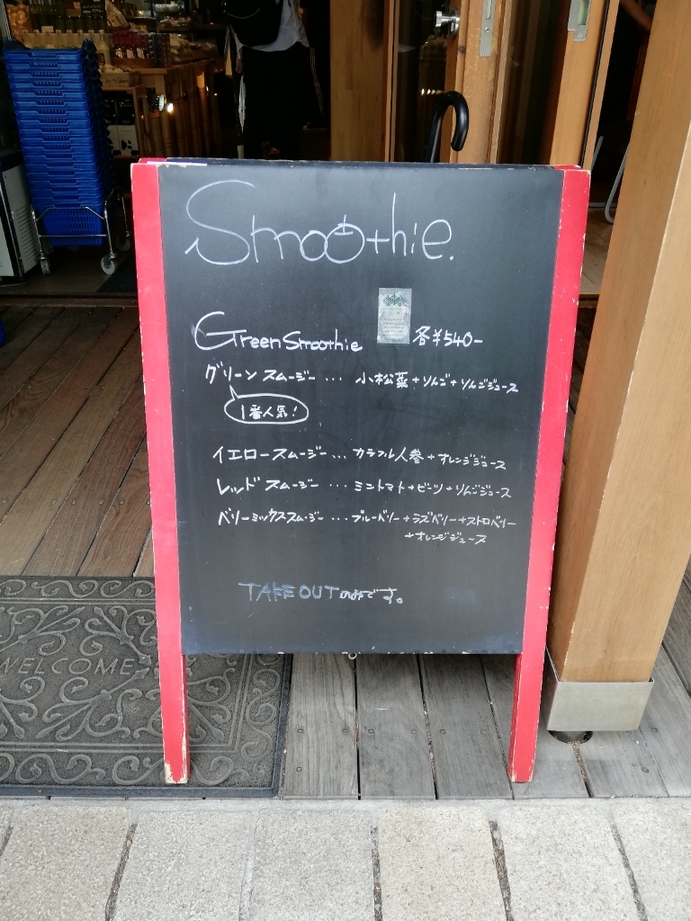 Smoothie.
Green Smoothie 各¥540-
グリーンスムージー … 小松菜+りんご+りんごジュース
1番人気!
イエロースムージー … カラフル人参+オレンジジュース
レッドスムージー … ミニトマト+ビーツ+りんごジュース
ベリーミックススムージー … ブルーベリー+ラズベリー+ストロベリー
+オレンジジュース
TAKE OUTのみです。
WELCOME